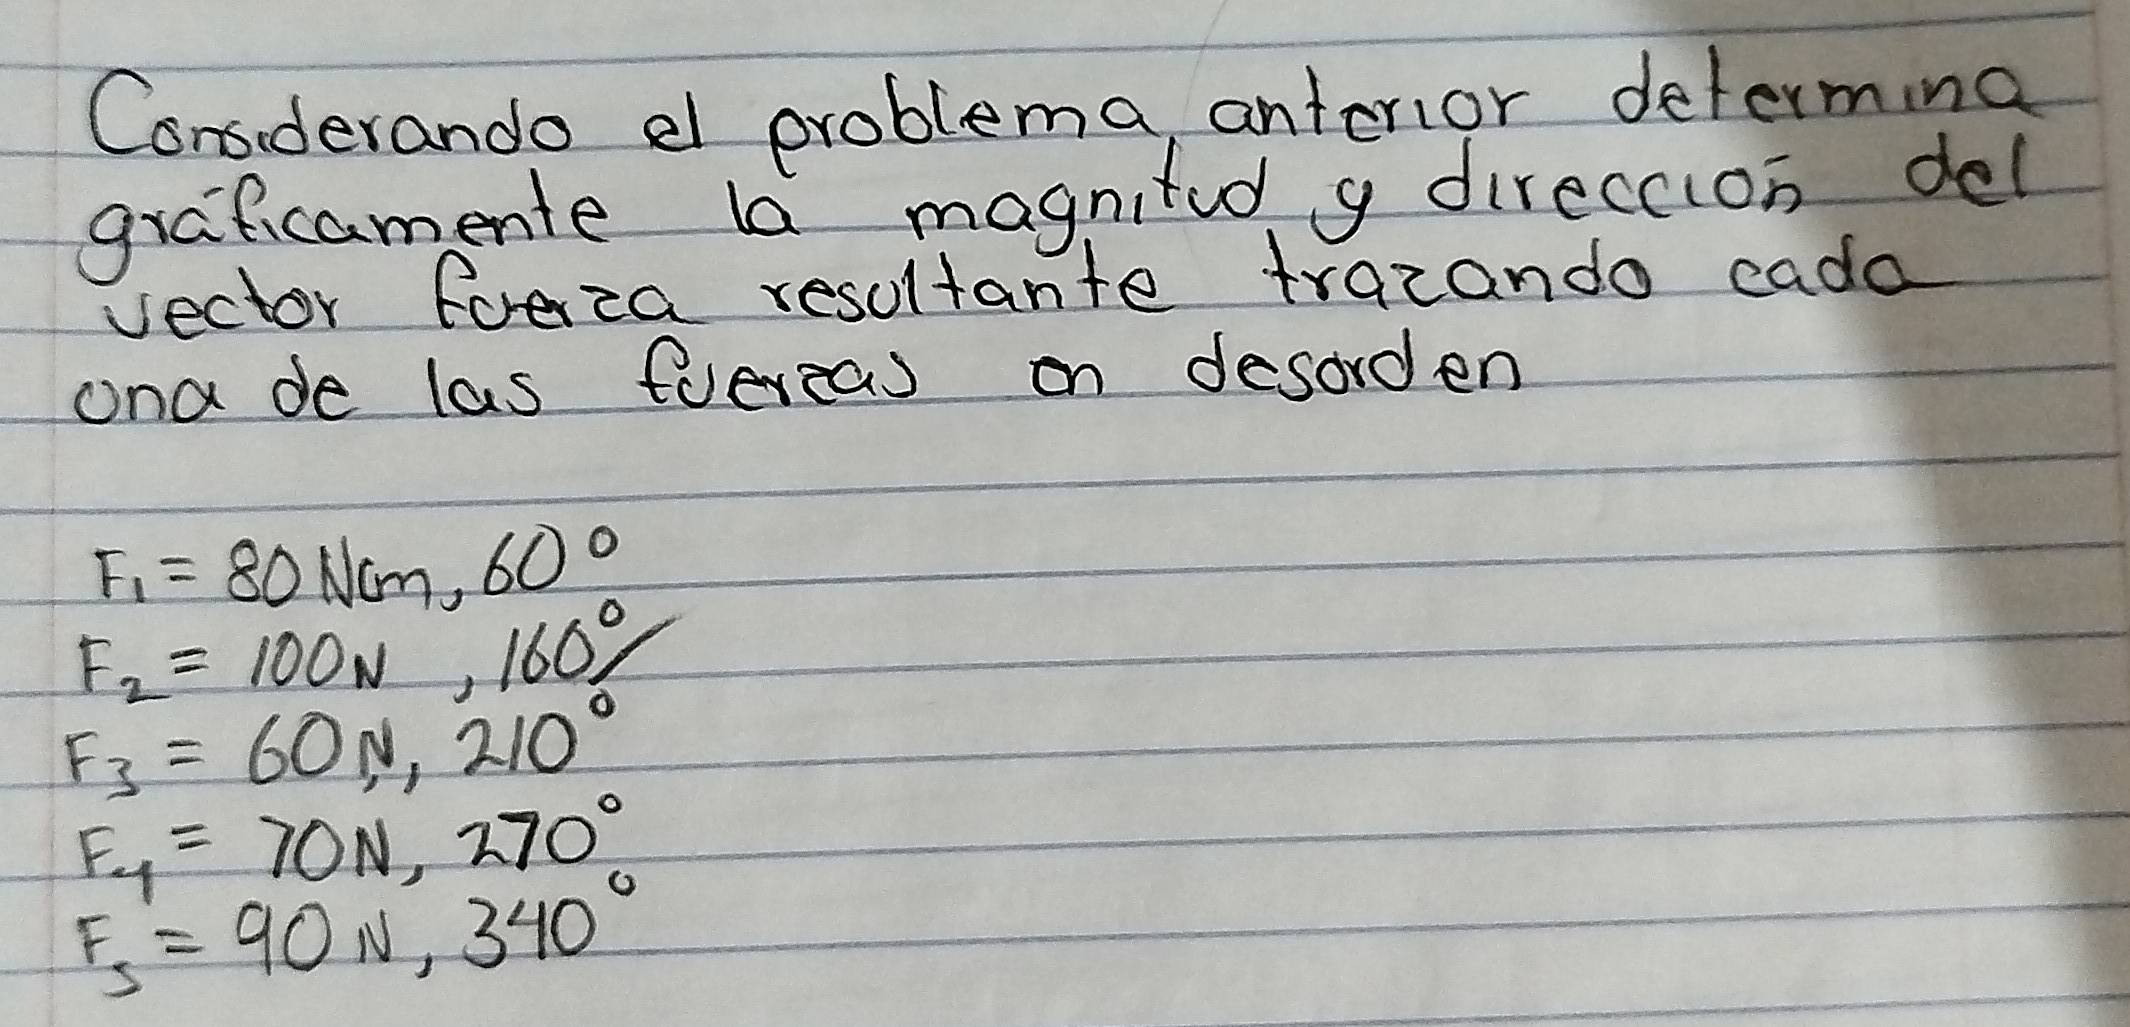 Considerando el problema anterior determina
gráficamente la magnitud y dirección del
vector fuerza resultante trazando cada
una de las fuerzas en desorden
F₁ = 80 Ncm, 60°
F₂ = 100N , 160°/
F₃ = 60N, 210°
F₄ = 70N, 270°
F₅ = 90N, 340°